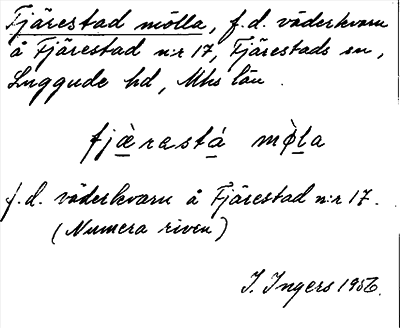 Fjärestad mölla, f.d. väderkvarn
å Fjärestad n:r 17, Fjärestads sn,
Luggude hd, Mhs län.
fjæ̀rastá mø̀la
f.d. väderkvarn å Fjärestad n:r 17.
(Numera riven)
I. Ingers 1956.